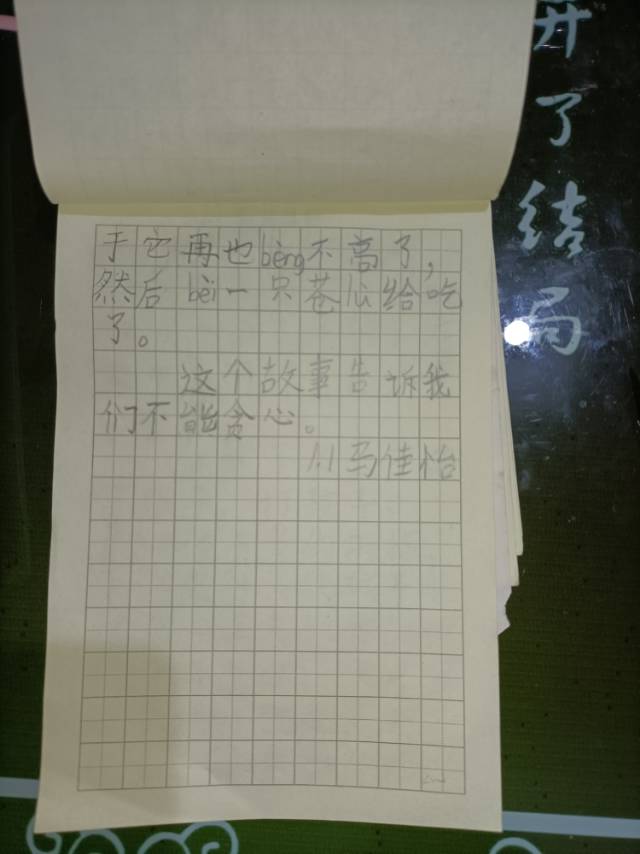 于它再也bèng不高了，
然后bèi一只苍给吃
了。
这个故事告诉我
们不能贪心。
1.1马佳怡
开了结局